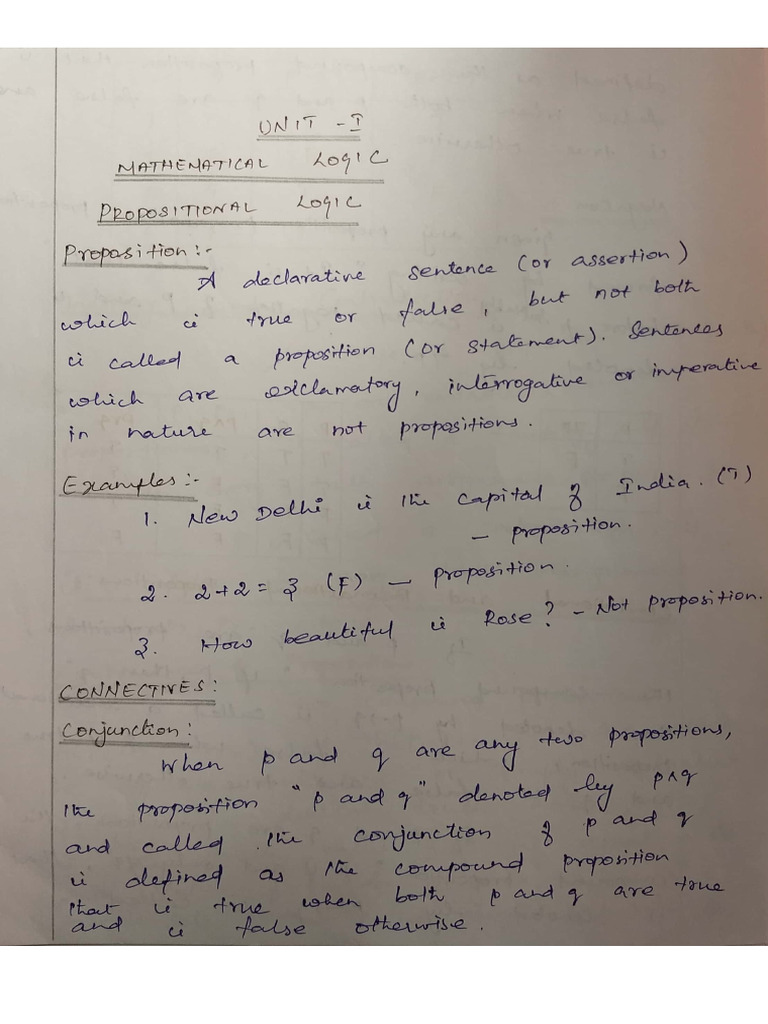 UNIT - I
MATHEMATICAL LOGIC
PROPOSITIONAL LOGIC
Proposition :-
A declarative sentence (or assertion)
which is true or false, but not both
is called a proposition (or statement). Sentences
which are exclamatory, interrogative or imperative
in nature are not propositions.
Examples :-
1. New Delhi is the capital of India. (T)
- proposition.
2. 2+2 = 3 (F) - proposition.
3. How beautiful is Rose? - Not proposition.
CONNECTIVES :
Conjunction :
When p and q are any two propositions,
the proposition "p and q" denoted by p∧q
and called the conjunction of p and q
is defined as the compound proposition
that is true when both p and q are true
and is false otherwise.